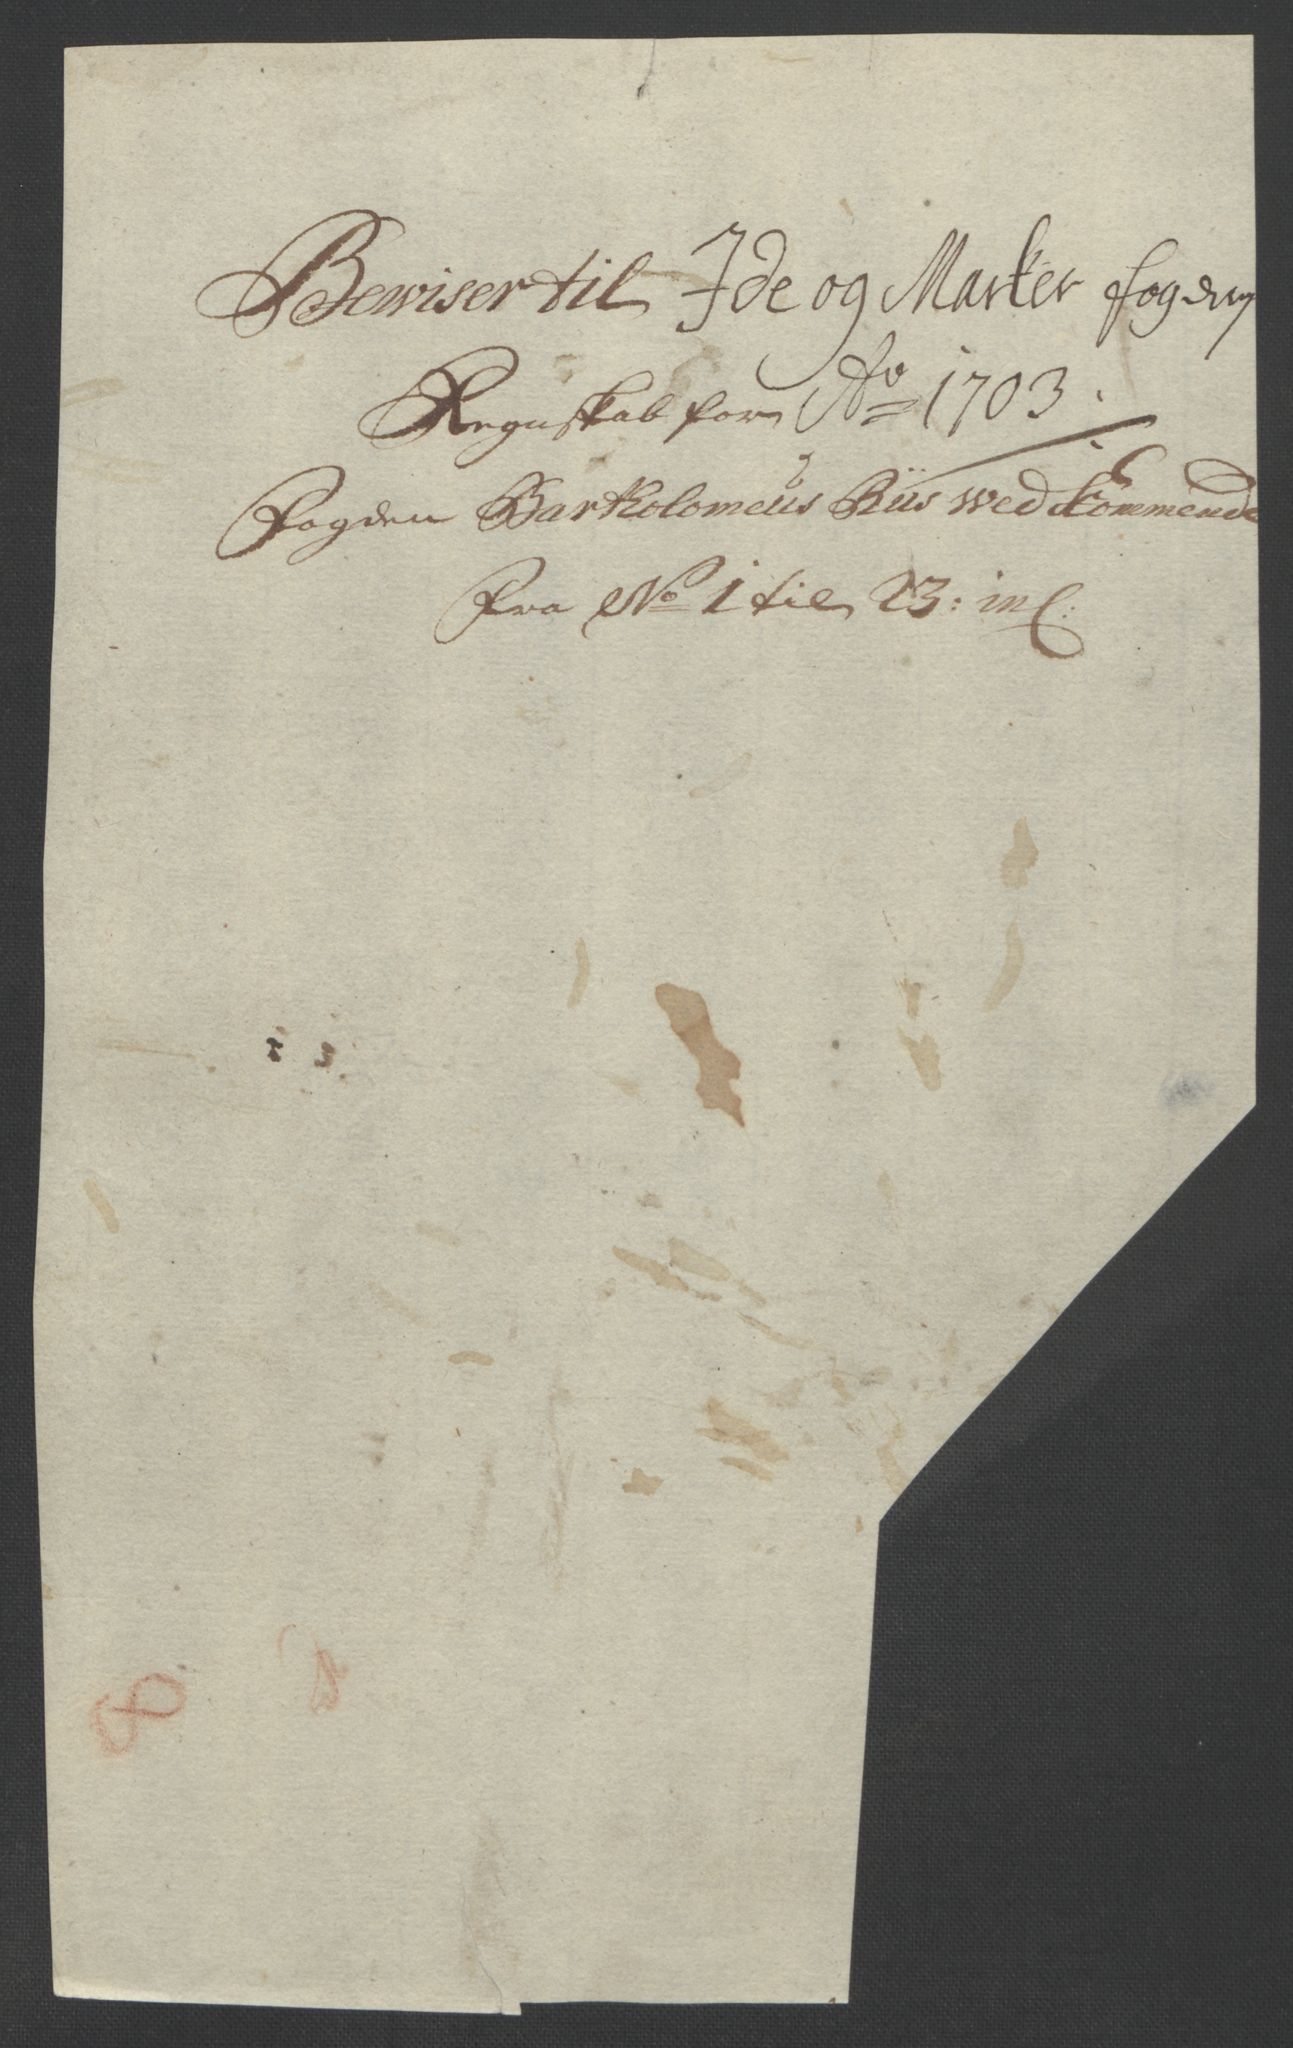 Bewiser til Ide og Marker fogderj
Regnskab for Ao 1703.
Fogden Bartholomeus Riis wedkommende
Fra No 1 til 23: incl:
8